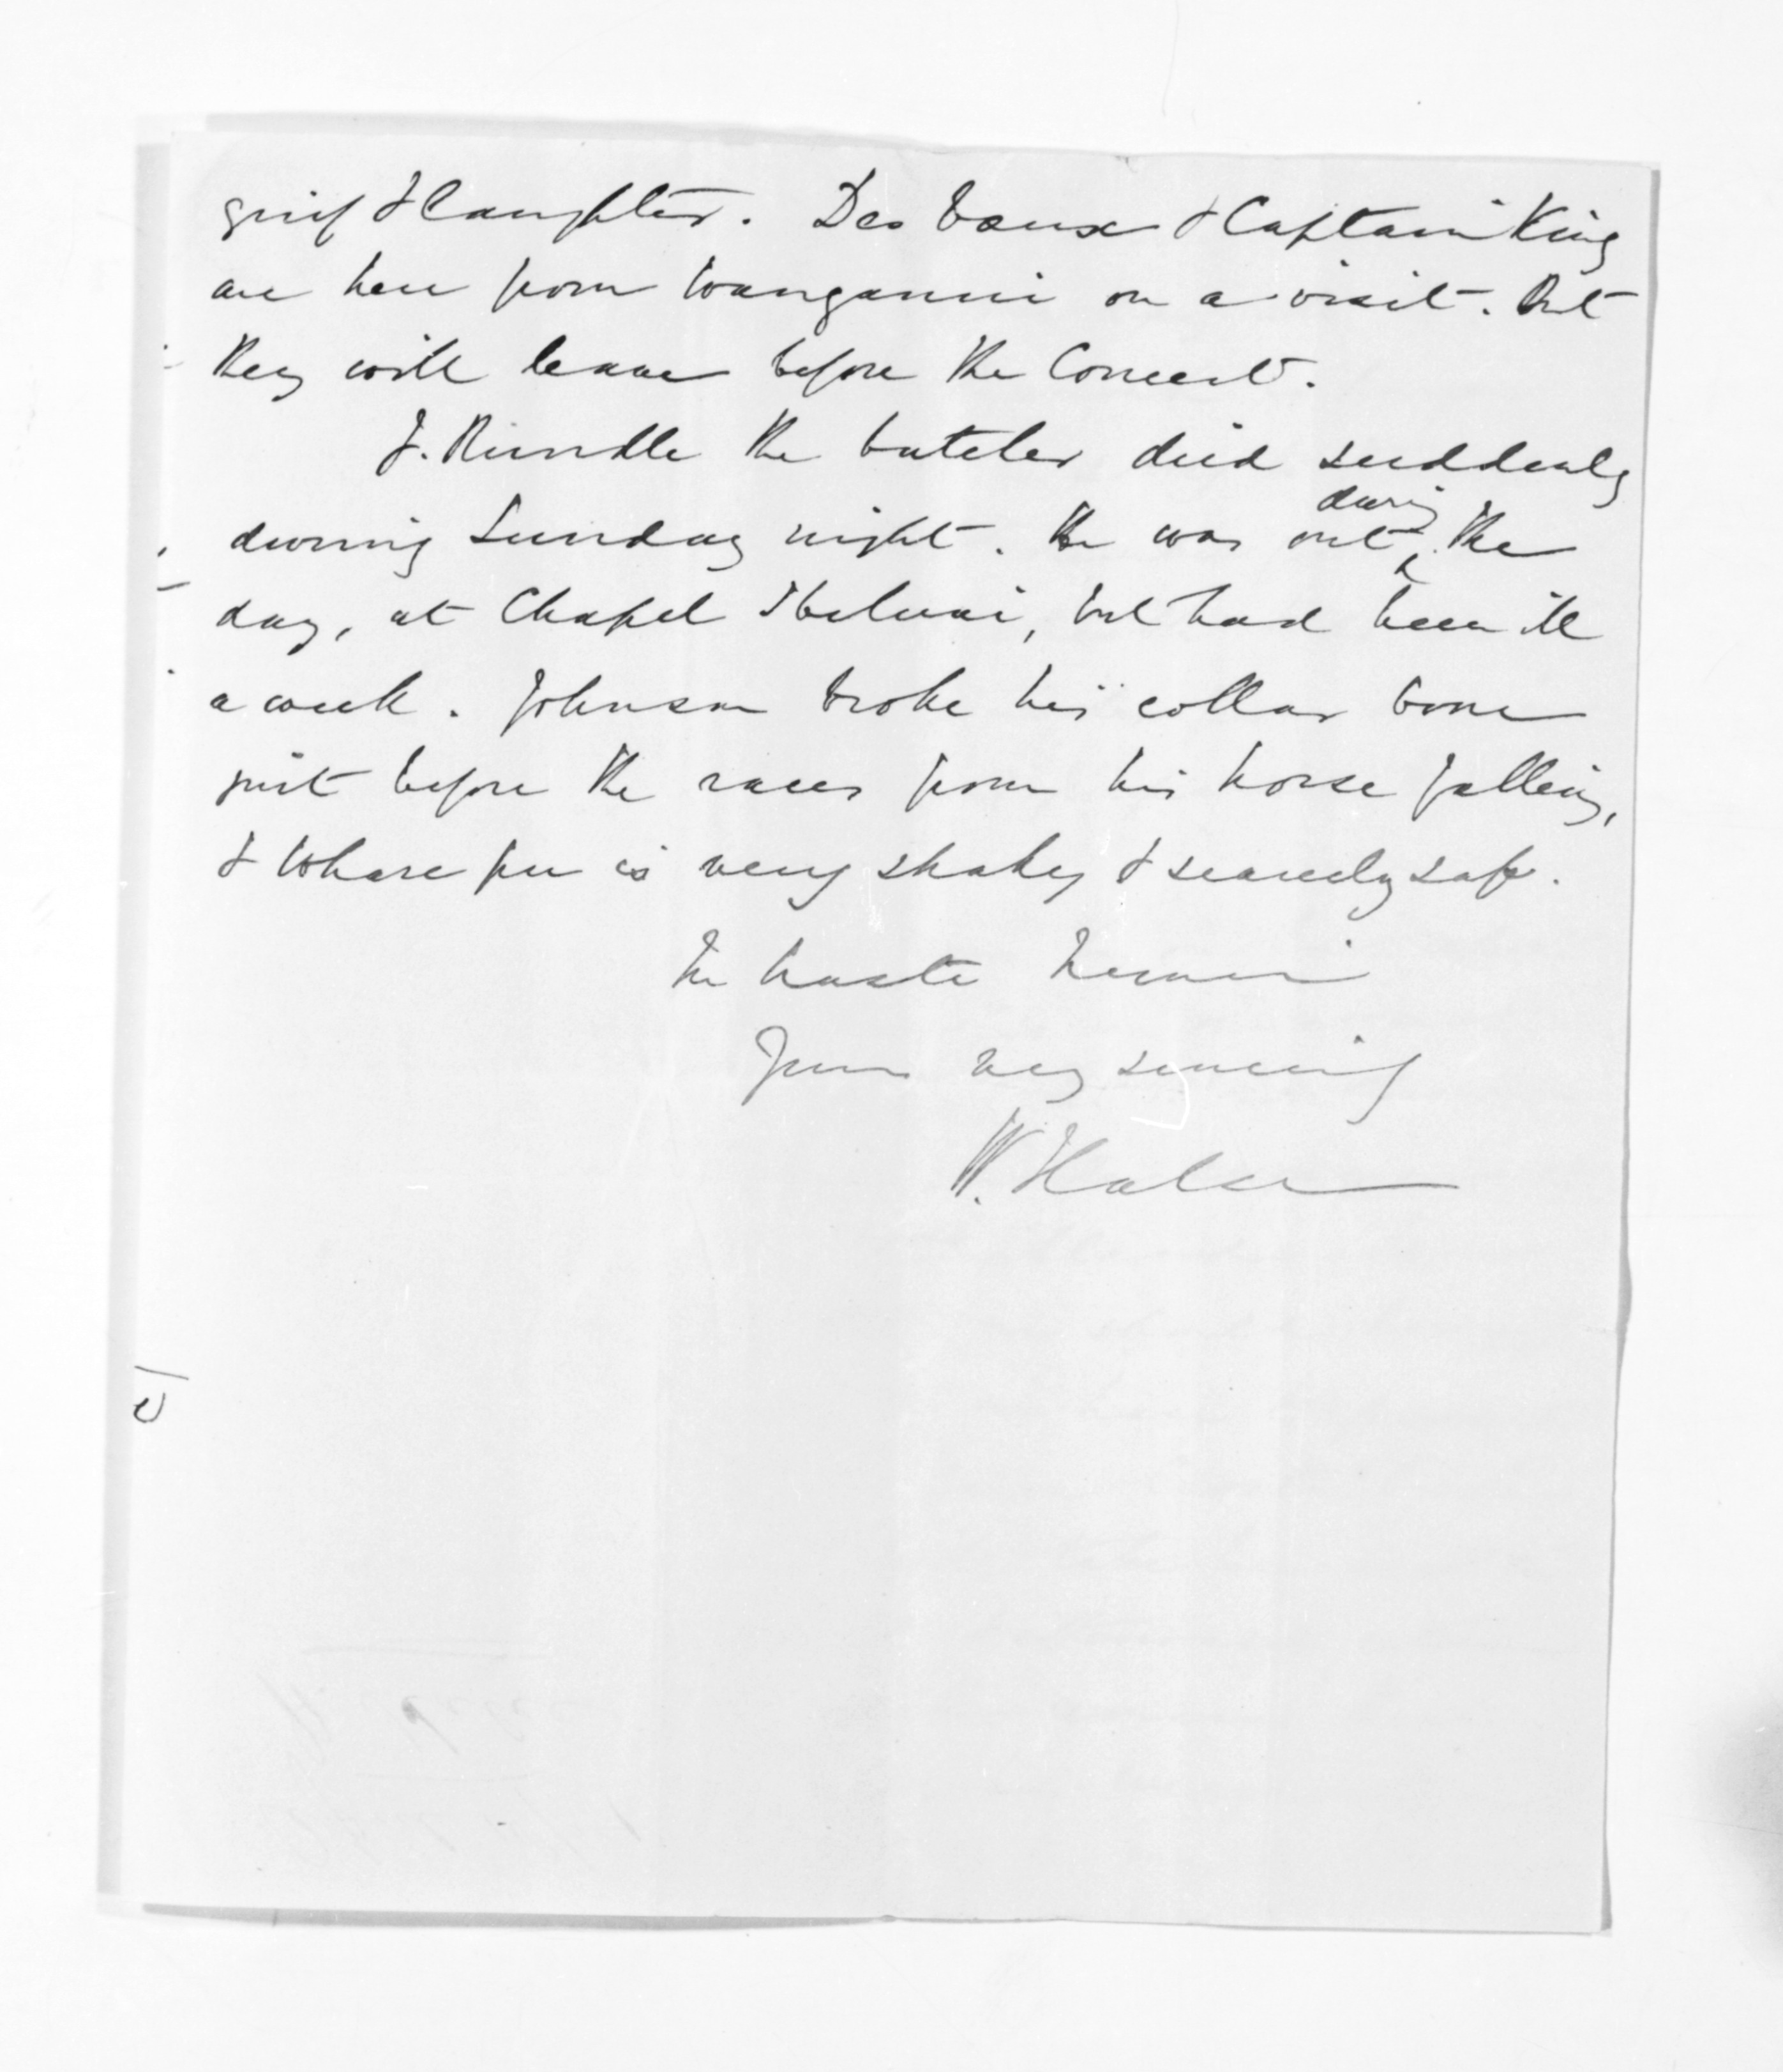 grief & laughter. Des Vaux & Captain King
are here from Wanganui on a visit. But
they will leave before the Concert.
J. Rundle the butcher died suddenly
during Sunday night. He was out during the
day, at Chapel &c, but had been ill
a week. Johnson broke his collar bone
just before the races from his horse falling,
& Whare is very shaky & scarcely safe.
In haste I remain
Yours very sincerely
W. Halse